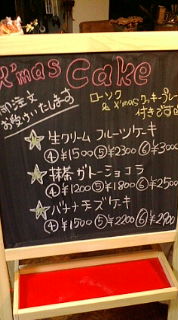 X'mas Cake
御注文
お受けいたします
ローソク
&X'masクッキープレート
付きです
☆生クリーム フルーツケーキ
④¥1500 ⑤¥2300 ⑥¥3000
☆抹茶ガトーショコラ
④¥1200 ⑤¥1800 ⑥¥2500
☆バナナチーズケーキ
④¥1500 ⑤¥2200 ⑥¥2900